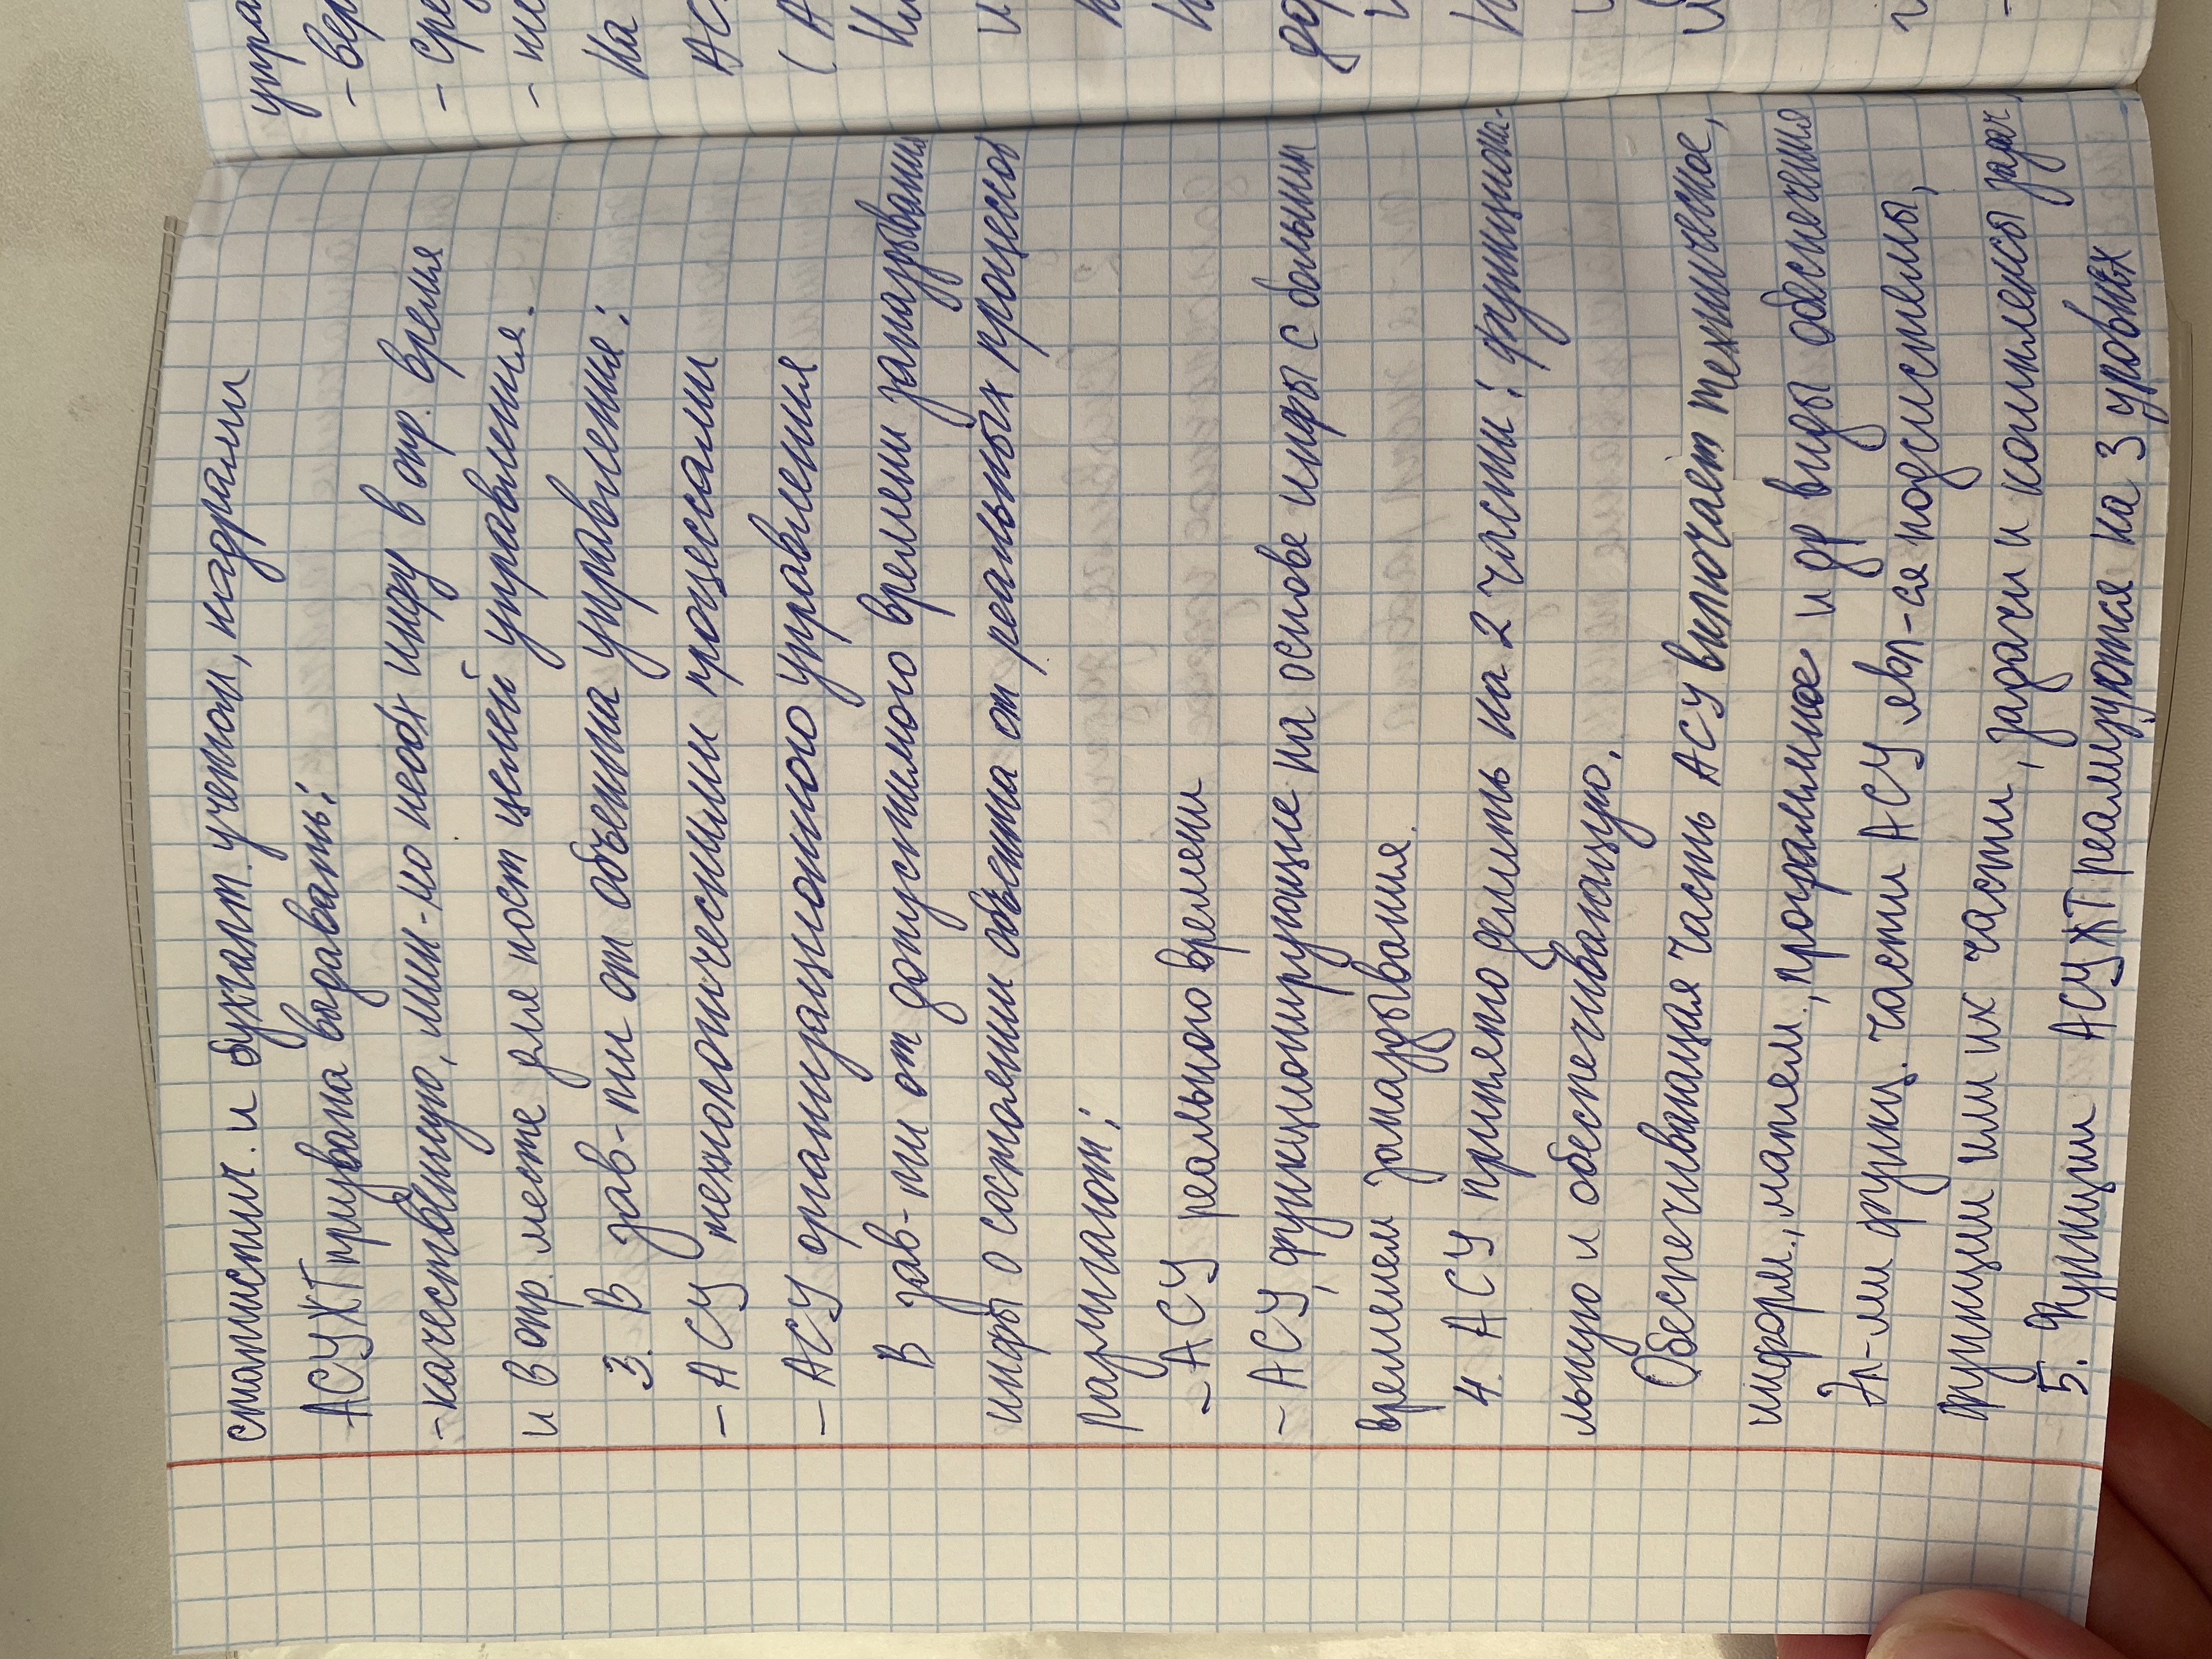 статистич. и бухгалт. учетом, кадрами
АСУЖТ призвана выдавать:
-качественную, мин-мо необх инфу в опр. время
и в опр. месте для пост целей управления.
3. В зав-ти от объекта управления:
- АСУ технологическими процессами
- АСУ организационного управления
В зав-ти от допустимого времени запаздывания
инфы о состоянии объекта от реальных процессов
различают:
- АСУ реального времени
- АСУ, функционирующие на основе инфы с большим
временем запаздывания.
4. АСУ принято делить на 2 части: функциона-
льную и обеспечивающую.
Обеспечивающая часть АСУ включает техническое,
информ., матем., програмное и др виды обеспечения
Эл-ми функц. части АСУ явл-ся подсистемы,
функции или их части, задачи и комплексы задач
5. Функции АСУЖТ реализуются на 3 уровнях
упра
- вер
- сре
- ни
На
АС
( А